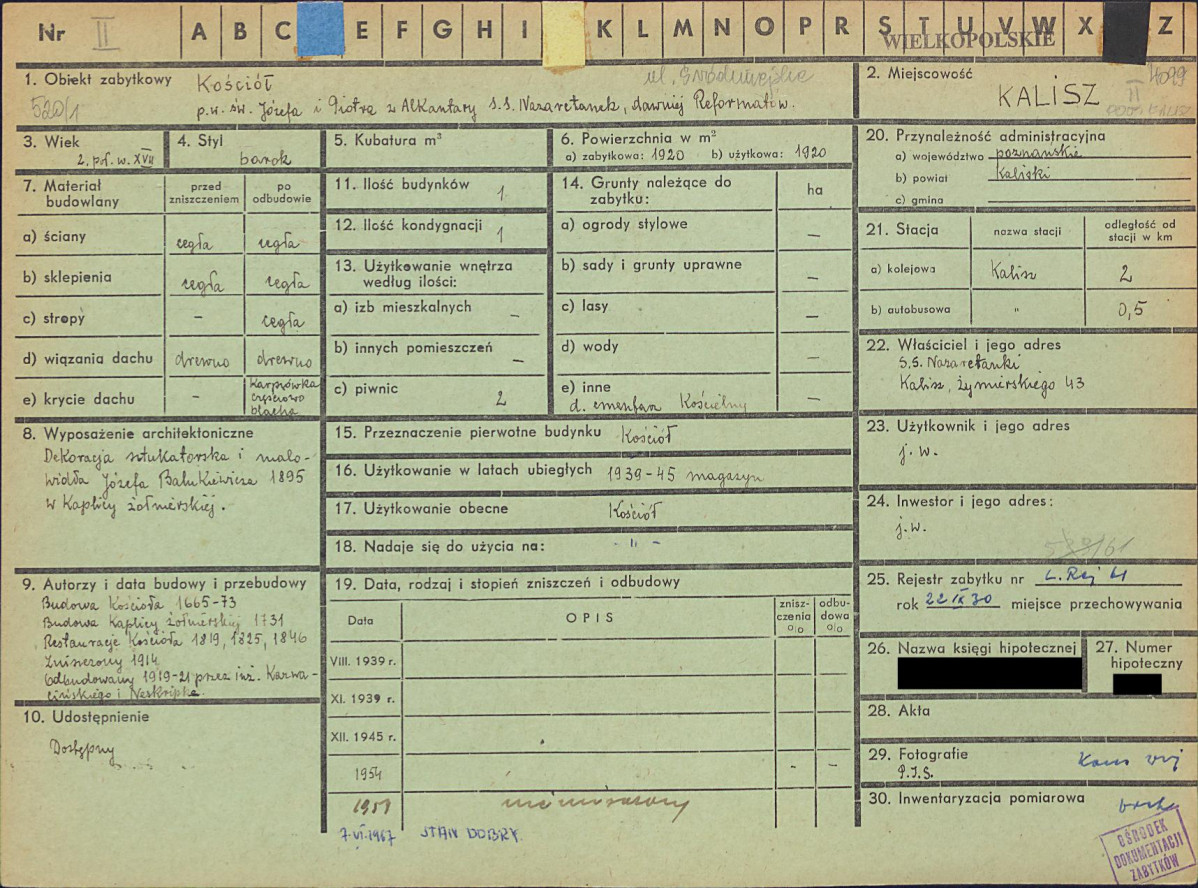 Nr II A B C E F G H I K L M N O P R S T U V W X Z
WIELKOPOLSKIE
1. Obiekt zabytkowy Kościół
p.w. św. Józefa i Piotra z Alkantary S.S. Nazaretanek, dawniej Reformatów.
520/1
2. Miejscowość
KALISZ
II
4099
3. Wiek
2. poł. w. XVII
4. Styl
barok
5. Kubatura m³
6. Powierzchnia w m²
a) zabytkowa: 1920 b) użytkowa: 1920
7. Materiał budowlany
przed zniszczeniem
po odbudowie
a) ściany cegła cegła
b) sklepienia cegła cegła
c) stropy – cegła
d) wiązania dachu drewno drewno
e) krycie dachu – karpiówka częściowo blacha
8. Wyposażenie architektoniczne
Dekoracja sztukatorska i malo-
widła Józefa Balukiewicza 1895
w Kaplicy żołnierskiej.
9. Autorzy i data budowy i przebudowy
Budowa Kościoła 1665-73
Budowa Kaplicy żołnierskiej 1731
Restauracje Kościoła 1819, 1825, 1846
Zniszczony 1914
Odbudowany 1919-21 przez inż. Karwa-
cińskiego i
10. Udostępnienie
Dostępny
11. Ilość budynków 1
12. Ilość kondygnacji 1
13. Użytkowanie wnętrza
według ilości:
a) izb mieszkalnych –
b) innych pomieszczeń –
c) piwnic 2
14. Grunty należące do
zabytku:
ha
a) ogrody stylowe –
b) sady i grunty uprawne –
c) lasy –
d) wody –
e) inne
d. cmentarz Kościelny –
15. Przeznaczenie pierwotne budynku Kościół
16. Użytkowanie w latach ubiegłych 1939-45 magazyn
17. Użytkowanie obecne Kościół
18. Nadaje się do użycia na: - " -
19. Data, rodzaj i stopień zniszczeń i odbudowy
Data
OPIS
znisz-
czenia
o/o
odbu-
dowa
o/o
VIII. 1939 r.
XI. 1939 r.
XII. 1945 r.
1954 – –
1959
7 VI. 1967 STAN DOBRY.
20. Przynależność administracyjna
a) województwo poznańskie
b) powiat Kaliski
c) gmina
21. Stacja
nazwa stacji
odległość od
stacji w km
a) kolejowa Kalisz 2
b) autobusowa " 0,5
22. Właściciel i jego adres
S.S. Nazaretanki
Kalisz, Żymierskiego 43
23. Użytkownik i jego adres
j. w.
24. Inwestor i jego adres:
j. w.
25. Rejestr zabytku nr L. Rej 61
rok 22 IX 30 miejsce przechowywania
26. Nazwa księgi hipotecznej
27. Numer
hipoteczny
28. Akta
29. Fotografie
P.I.S.
30. Inwentaryzacja pomiarowa
OŚRODEK
DOKUMENTACJI
ZABYTKÓW